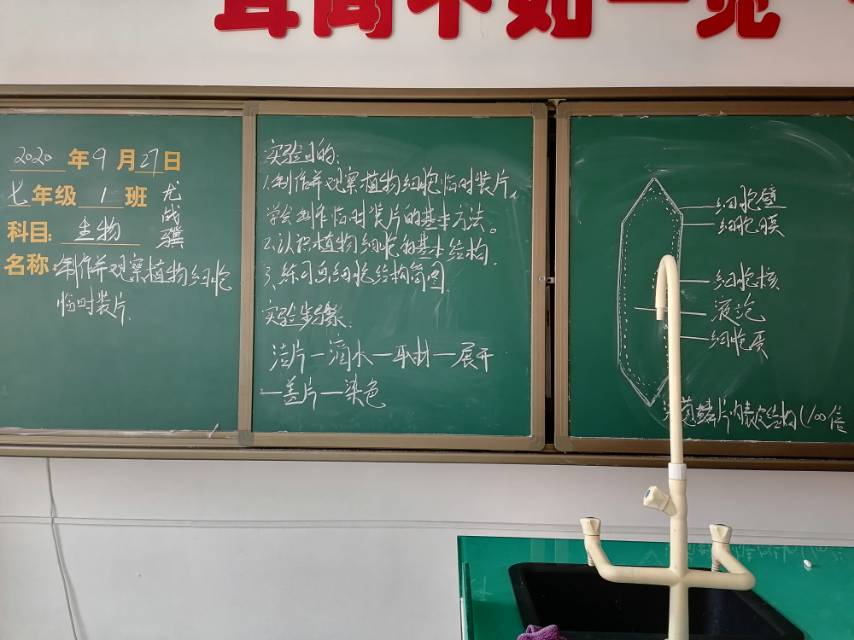 耳闻不如一见
2020年9月27日
七年级 1 班
科目:生物
尤战骥
名称:制作并观察植物细胞
临时装片.
实验目的:
1.制作并观察植物细胞临时装片,
学会制作临时装片的基本方法。
2.认识植物细胞的基本结构.
3.练习画细胞结构简图.
实验步骤:
洁片一滴水一取材一展开
一盖片一染色
细胞壁
细胞膜
细胞核
液泡
细胞质
葱鳞片内表皮结构(100倍